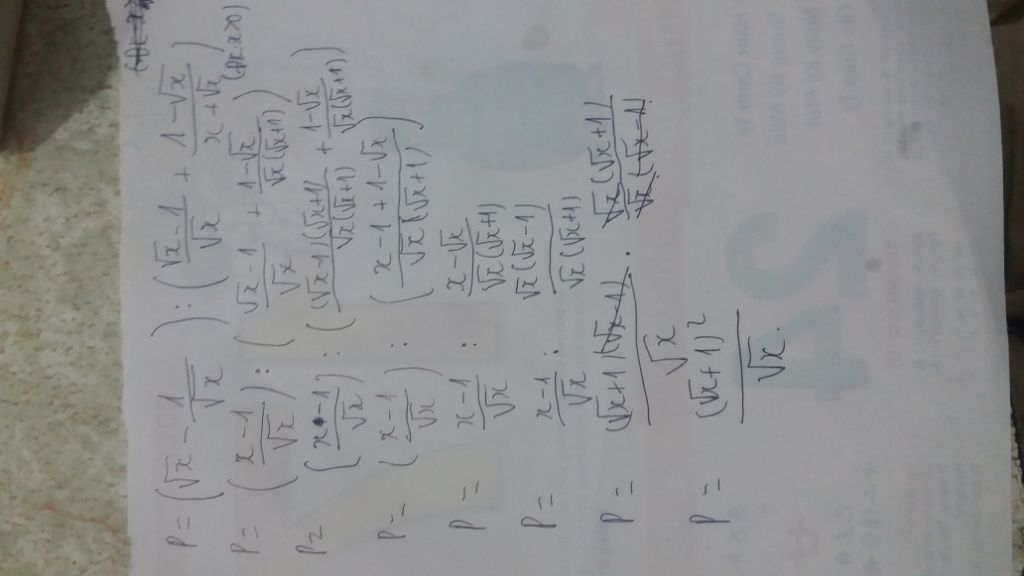 P = (√x − 1/√x) : ((√x−1)/√x + (1−√x)/(x+√x))
(ĐK x>0)
P = ((x−1)/√x) : ((√x−1)/√x + (1−√x)/(√x(√x+1)))
P = ((x−1)/√x) : ((√x−1)(√x+1)/(√x(√x+1)) + (1−√x)/(√x(√x+1)))
P = ((x−1)/√x) : ((x−1+1−√x)/(√x(√x+1)))
P = (x−1)/√x : (x−√x)/(√x(√x+1))
P = (x−1)/√x : √x(√x−1)/(√x(√x+1))
P = (√x+1)(√x−1)/√x . √x(√x+1)/(√x(√x−1))
P = (√x+1)²/√x.